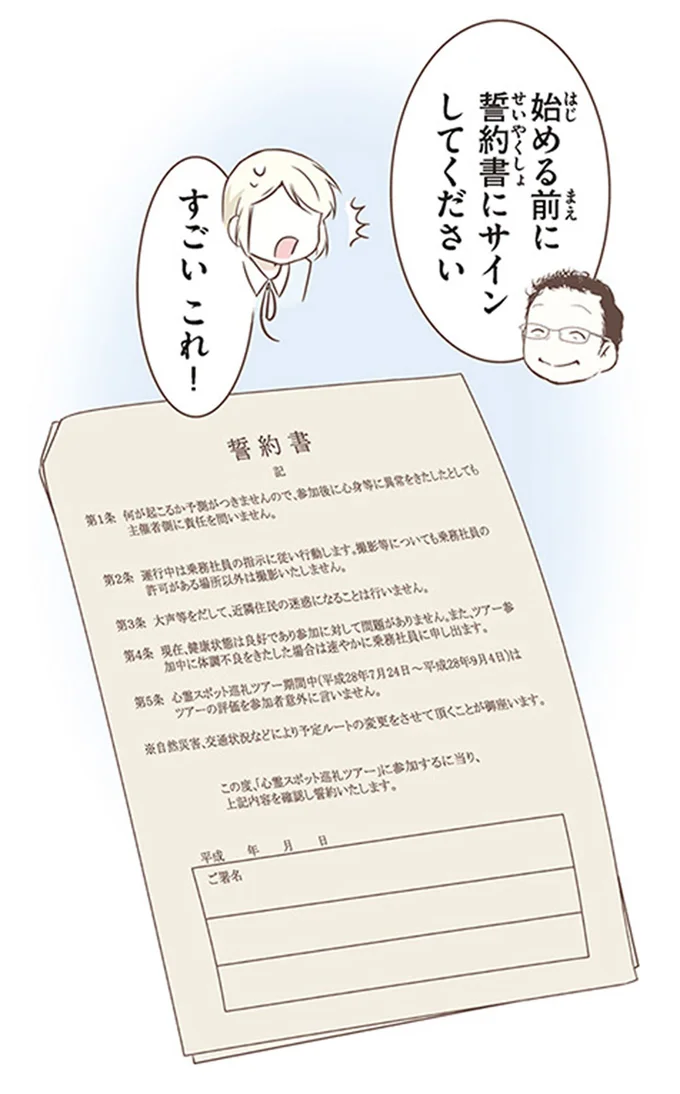 始める前に
誓約書にサイン
してください
すごい これ!
誓約書
記
第1条 何が起こるか予測がつきませんので、参加後に心身等に異常をきたしたとしても
主催者側に責任を問いません。
第2条 運行中は乗務社員の指示に従い行動します。撮影等についても乗務社員の
許可がある場所以外は撮影いたしません。
第3条 大声等をだして、近隣住民の迷惑になることは行いません。
第4条 現在、健康状態は良好であり参加に対して問題がありません。また、ツアー参
加中に体調不良をきたした場合は速やかに乗務社員に申し出ます。
第5条 心霊スポット巡礼ツアー期間中(平成28年7月24日～平成28年9月4日)は
ツアーの評価を参加者意外に言いません。
※自然災害、交通状況などにより予定ルートの変更をさせて頂くことが御座います。
この度、「心霊スポット巡礼ツアー」に参加するに当り、
上記内容を確認し誓約いたします。
平成 年 月 日
ご署名